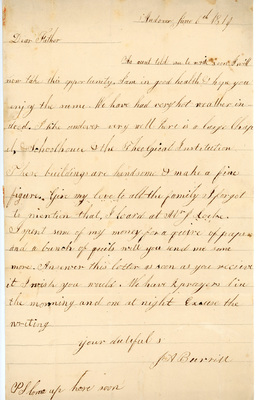 Andover June 6th 1814
Dear Father
As you told me to write soon I will
now take this opportunity. I am in good health & hope you
enjoy the same. We have had very hot weather in-
deed. I like andover very well there is a large Chap
el, Schoolhouse & the Theological Institution
These buildings are handsome & make a fine
figure. Give my love to all the family I forgot
to mention that I board at Mr
I spent some of my money for a quire of paper
and a bunch of quills will you send me some
more. Answer this letter as soon as you receive
it I wish you would. We have 2 prayers 1 in
the morning and one at night Excuse the
writing
Your dutiful s
Burrill
P.S. Come up here soon